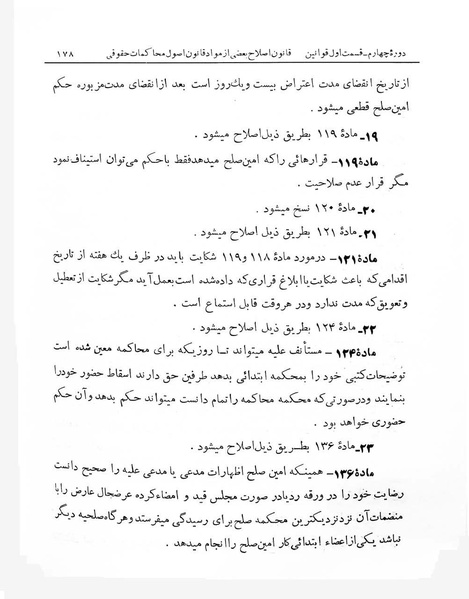 دورهٔ چهارم – قسمت اول قوانین قانون اصلاح بعضی از مواد قانون اصول محاکمات حقوقی ۱۷۸
از تاریخ انقضای مدت اعتراض بیست و یك روز است بعد از انقضای مدت مزبوره حکم
امین صلح قطعی میشود .
۱۹ـ مادهٔ ۱۱۹ بطریق ذیل اصلاح میشود .
مادهٔ ۱۱۹– قرارهائی را که امین صلح میدهد فقط با حکم می توان استیناف نمود
مگر قرار عدم صلاحیت .
۲۰ـ مادهٔ ۱۲۰ نسخ میشود .
۲۱ـ مادهٔ ۱۲۱ بطریق ذیل اصلاح میشود .
مادهٔ ۱۲۱– در مورد مادهٔ ۱۱۸ و ۱۱۹ شکایت باید در ظرف یك هفته از تاریخ
اقدامی که باعث شکایت یا ابلاغ قراری که داده شده است بعمل آید مگر شکایت از تعطیل
و تعویق که مدت ندارد و در هر وقت قابل استماع است .
۲۲ـ مادهٔ ۱۲۴ بطریق ذیل اصلاح میشود .
مادهٔ ۱۲۴– مستأنف علیه میتواند تا روزیکه برای محاکمه معین شده است
توضیحات کتبی خود را بمحکمه ابتدائی بدهد طرفین حق دارند اسقاط حضور خود را
بنمایند و در صورتی که محکمه محاکمه را تمام دانست میتواند حکم بدهد و آن حکم
حضوری خواهد بود .
۲۳ـ مادهٔ ۱۳۶ بطریق ذیل اصلاح میشود .
مادهٔ ۱۳۶– همینکه امین صلح اظهارات مدعی یا مدعی علیه را صحیح دانست
رضایت خود را در ورقه رد یا در صورت مجلس قید و امضاء کرده عرضحال عارض را با
منضمات آن نزد نزدیکترین محکمه صلح برای رسیدگی میفرستد و هر گاه صلحیه دیگر
نباشد یکی از اعضاء ابتدائی کار امین صلح را انجام میدهد .